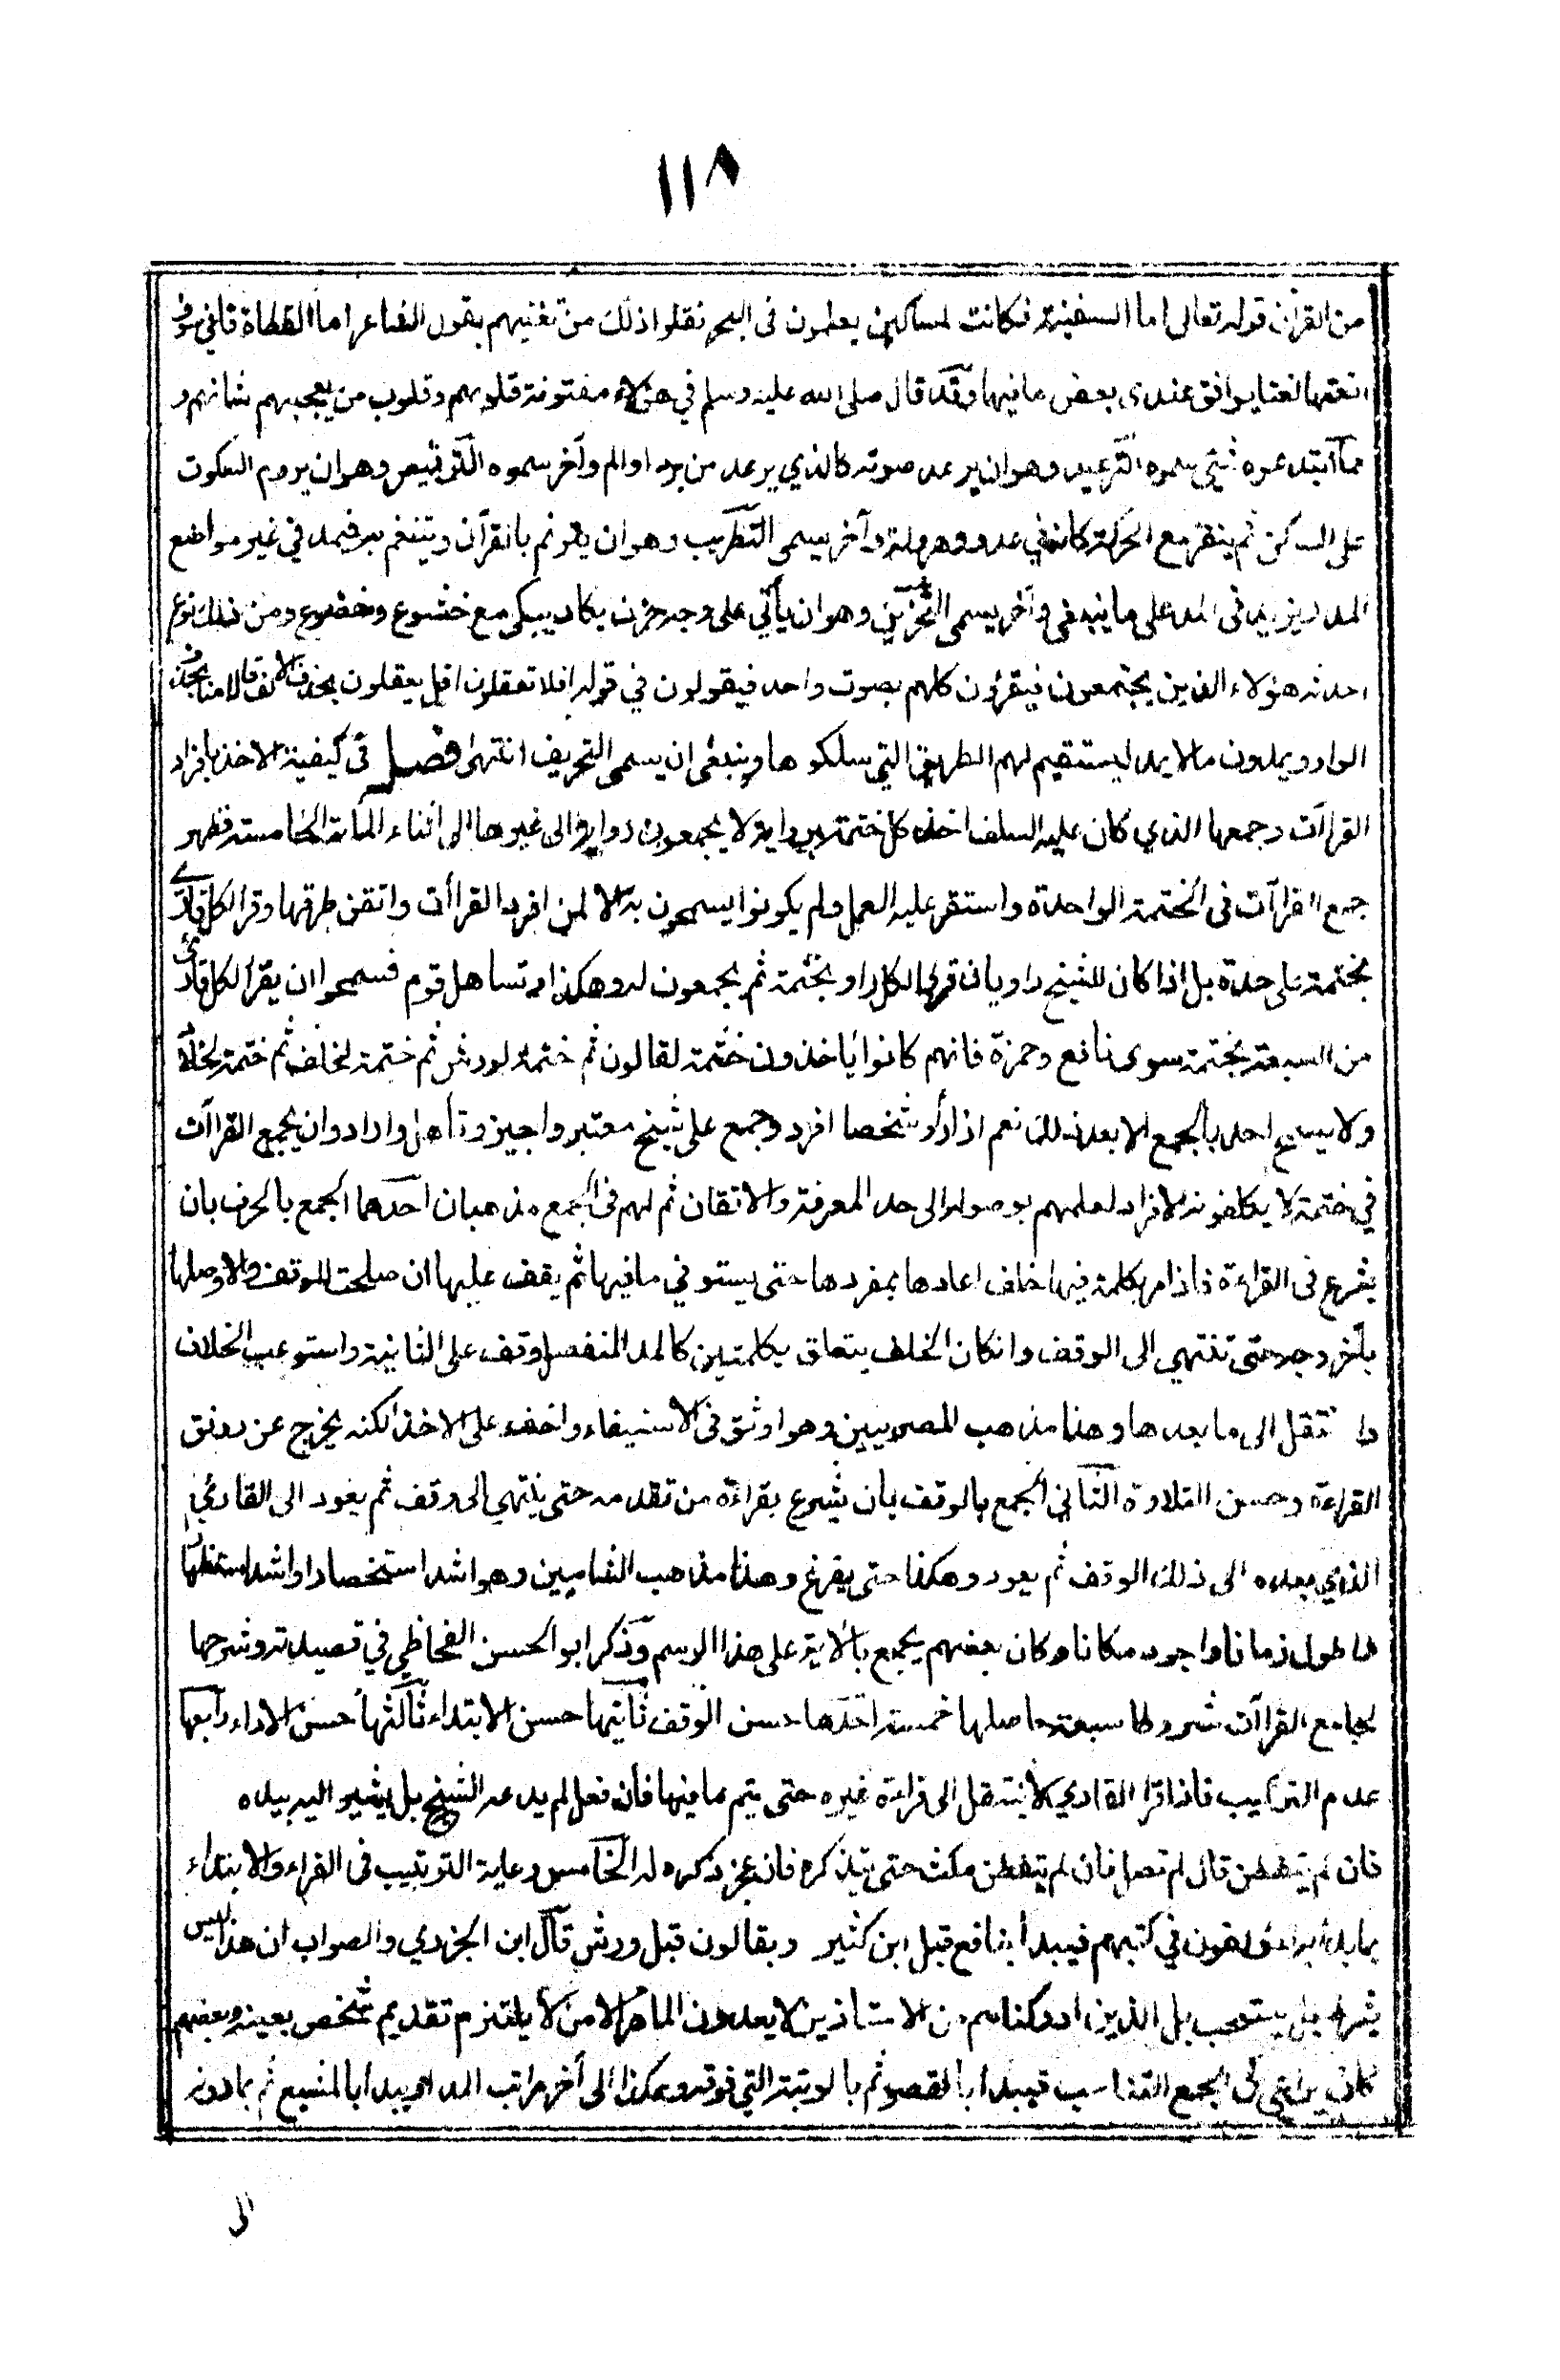 ١١٨
من القرآن قوله تعالى اما السفينة فكانت لمساكين يعملون فى البحر نقلوا ذلك من تغنيهم بقول الشاعر اما القطاة فاني سوف
انعتها نعتا يوافق عندى بعض مافيها وقد قال صلى الله عليه وسلم في هؤلاء مفتونة قلوبهم وقلوب من يعجبهم شانهم و
مما ابتدعوه شيئ سموه الترعيد وهو ان يرعد صوته كالذي يرعد من برد او الم وآخر سموه الترقيص وهو ان يروم السكوت
على الساكن ثم ينفر مع الحركة كانه في عدو وهرولة وآخر يسمى التطريب وهو ان يترنم بالقرآن ويتنغم به فيمد في غير مواضع
المد ويزيد فى المد على ما ينبغى وآخر يسمى التحزين وهو ان يأتي على وجه حزن يكاد يبكى مع خشوع وخضوع ومن ذلك نوع
احدثه هؤلاء الذين يجتمعون فيقرؤن كلهم بصوت واحد فيقولون في قوله افلا تعقلون افل يعقلون بحذف الالف قال امنا بحذف
الواو ويمدون مالا يمد ليستقيم لهم الطريق التي سلكوها وينبغى ان يسمى التحريف انتهى فصل فى كيفية الاخذ بافراد
القراآت وجمعها الذي كان عليه السلف اخذ كل ختمة برواية لا يجمعون رواية الى غيرها الى اثناء المائة الخامسة فظهر
جمع القراآت فى الختمة الواحدة واستقر عليه العمل ولم يكونوا يسمحون به الا لمن افرد القراآت واتقن طرقها وقرا لكل قارئ
بختمة على حدة بل اذا كان للشيخ راويان قرؤا لكل راو بختمة ثم يجمعون له وهكذا وتساهل قوم فسمحوا ان يقرأ لكل قارئ
من السبعة بختمة سوى نافع وحمزة فانهم كانوا يأخذون ختمة لقالون ثم ختمة لورش ثم ختمة لخلف ثم ختمة لخلاد
ولا يسمح احد بالجمع الا بعد ذلك نعم اذا رأوا شخصا افرد وجمع على شيخ معتبر واجيز وتأهل وارادوان يجمع القراآت
في ختمة لا يكلفونه الافراد لعلمهم بوصوله الى حد المعرفة والاتقان ثم لهم فى الجمع مذهبان احدهما الجمع بالحرف بان
يشرع فى القراءة فاذا مر بكلمة فيها خلف اعادها بمفردها حتى يستوفي مافيها ثم يقف عليها ان صلحت للوقف والا وصلها
بآخر وجه حتى تنتهي الى الوقف وانكان الخلف يتعلق بكلمتين كالمد المنفصل وقف على الثانية واستوعب الخلاف
وانتقل الى ما بعدها وهذا مذهب المصريين وهو اوثق فى الاستيفاء واخف على الاخذ لكنه يخرج عن رونق
القراءة وحسن التلاوة الثاني الجمع بالوقف بان يشرع بقراءة من تقدمه حتى ينتهي الى وقف ثم يعود الى القارئ
الذي بعده الى ذلك الوقف ثم يعود وهكذا حتى يفرغ وهذا مذهب الشاميين وهو اشد استحضارا واشد استظهارا
واطول زمانا واجود مكانا وكان بعضهم يجمع بالآية على هذا الرسم وذكر ابو الحسن القحاطي في قصيدته وشرحها
لجامع القراآت شروطا سبعة حاصلها خمسة احدها حسن الوقف ثانيها حسن الابتداء ثالثها حسن الاداء رابعها
عدم التركيب فاذا قرا القاري لا ينتقل الى قراءة غيره حتى يتم مافيها فان فعل لم يدعه الشيخ بل يشير اليه بيده
فان لم يتفطن قال لم تصل فان لم يتفطن مكث حتى يتذكر فان عجز ذكره له الخامس رعاية الترتيب فى القراءة والابتداء
بما بدأ به المؤلفون في كتبهم فيبدأ بنافع قبل ابن كثير وبقالون قبل ورش قال ابن الجزري والصواب ان هذا ليس
بشرط بل يستحب بل الذين ادركناهم من الاستاذين لا يعدون الماهر الا من لا يلتزم تقديم شخص بعينه وبعضهم
كان يراعي فى الجمع التناسب فيبدا بالقصر ثم بالرتبة التي فوقه وهكذا الى آخر مراتب المد او يبدا بالمشبع ثم بما دونه
الى